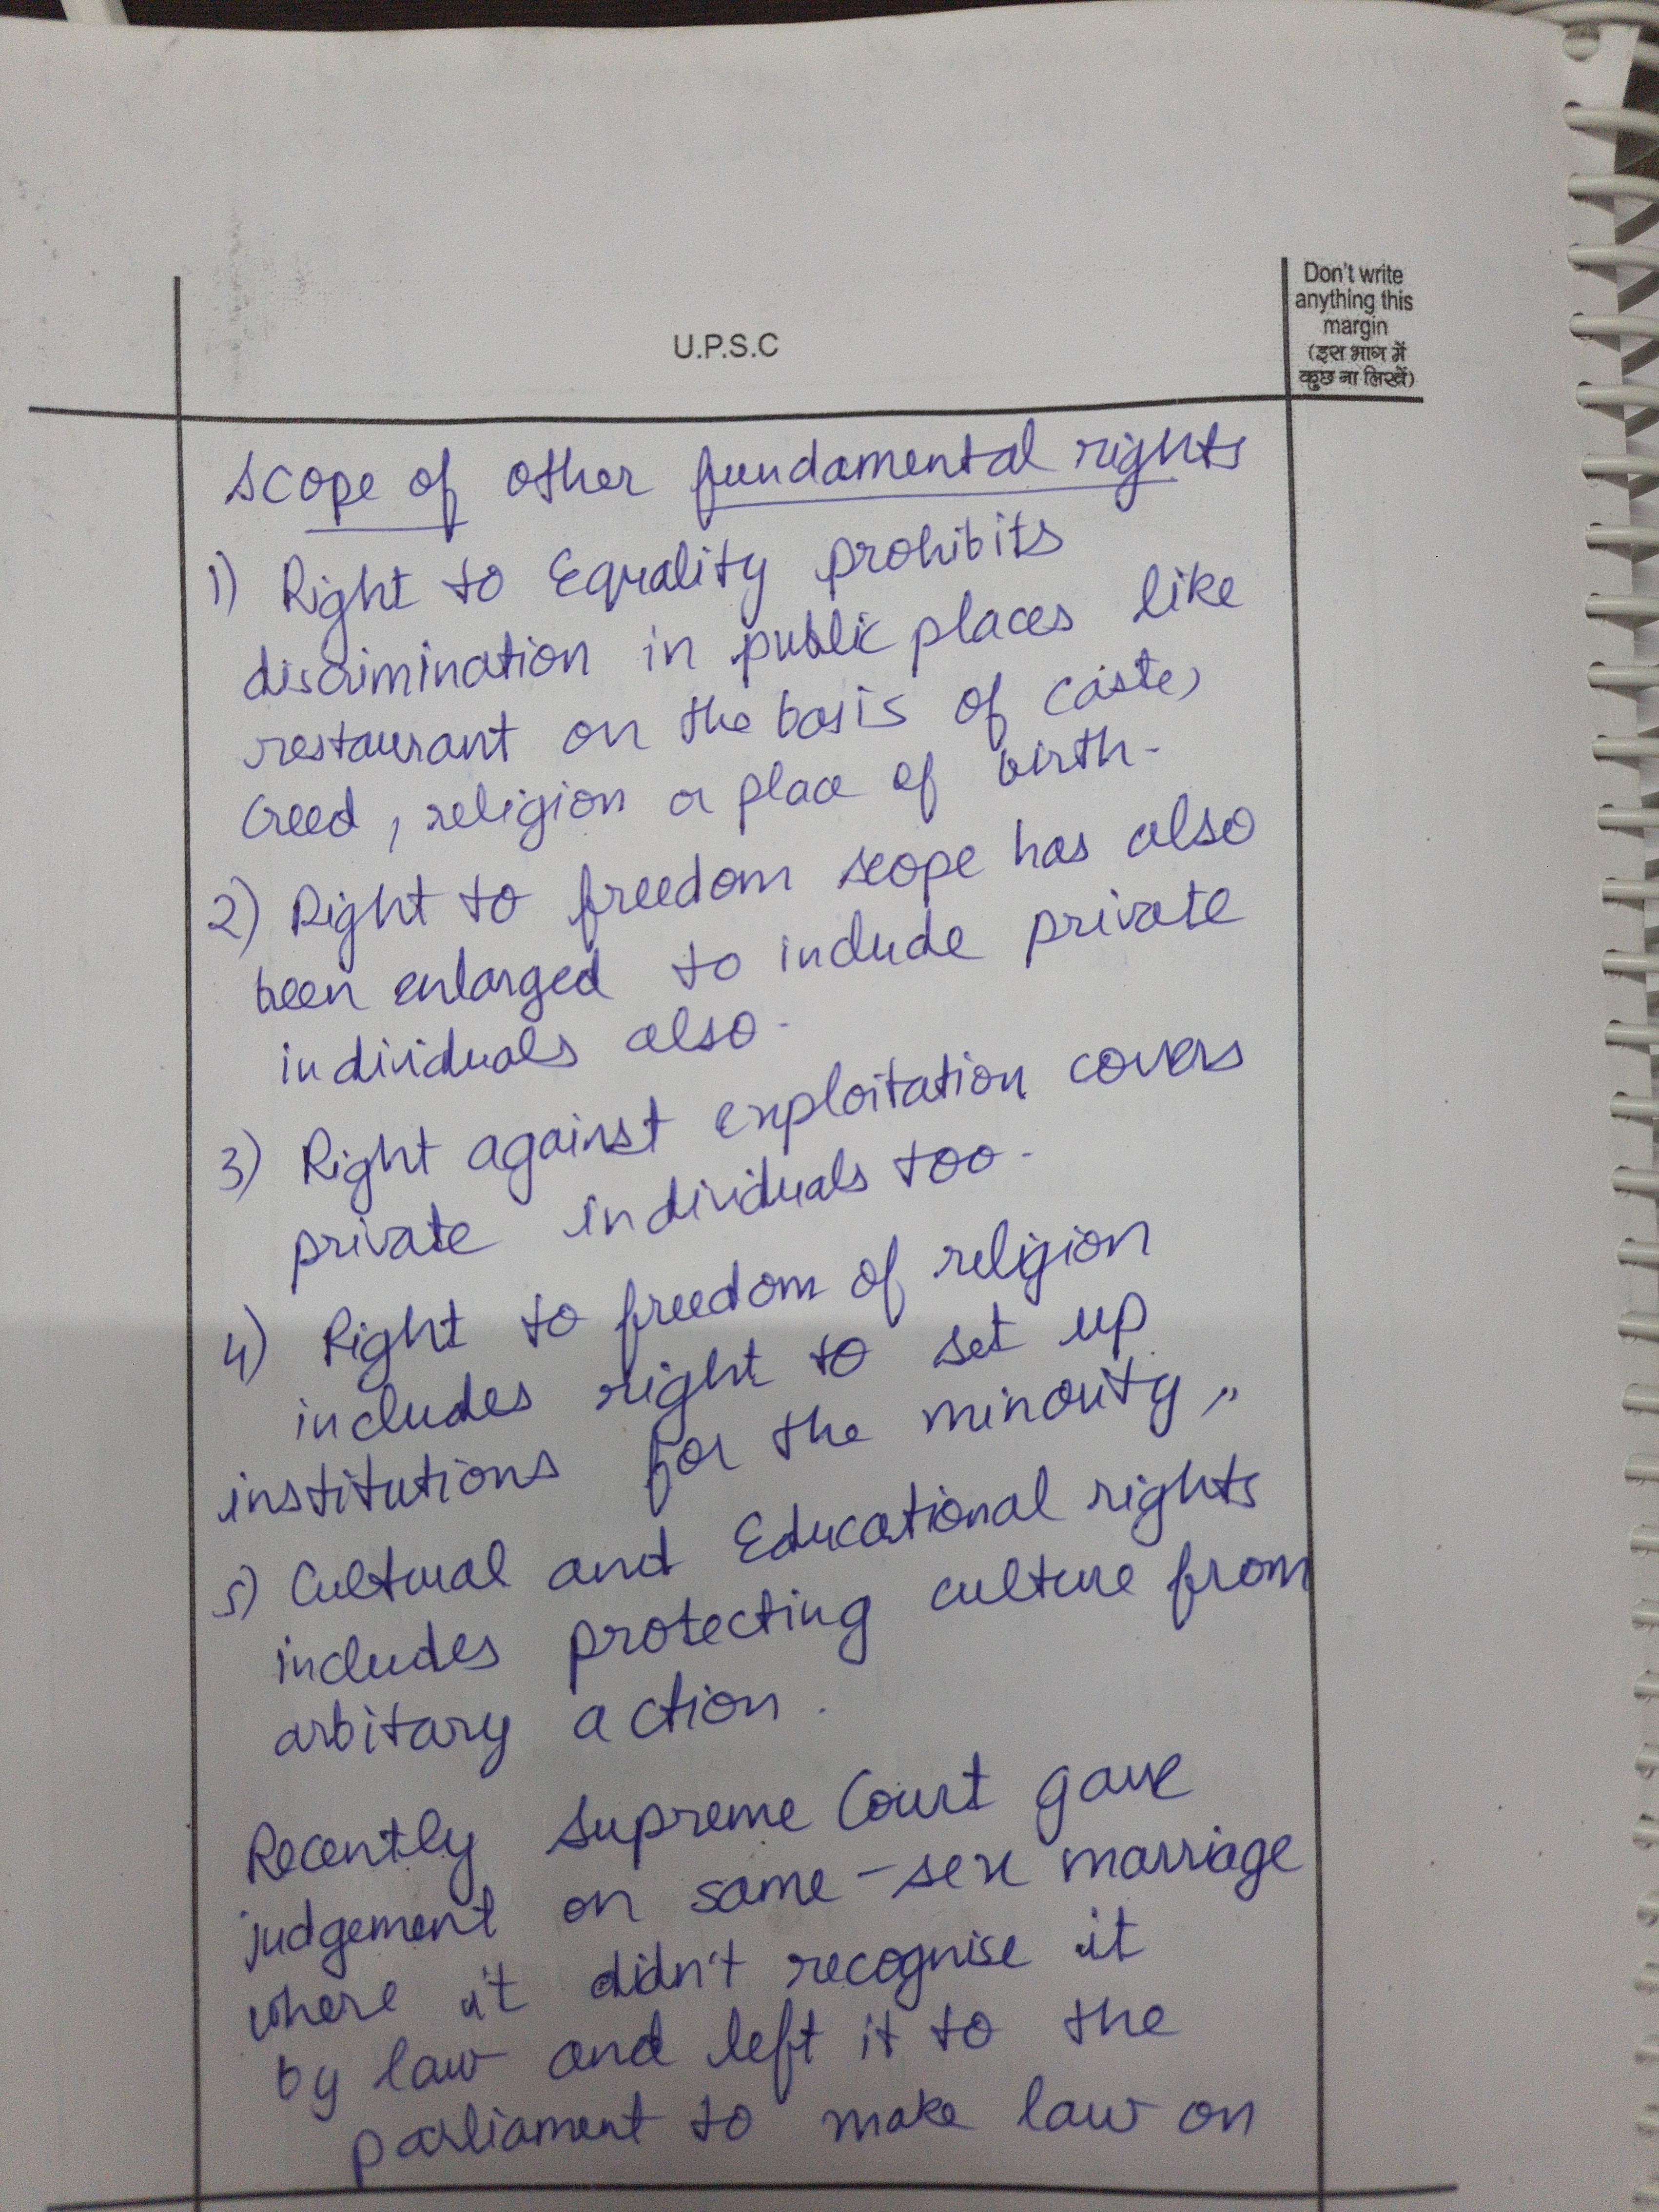 Don't write
anything this
margin
(इस भाग में
कुछ ना लिखें)
U.P.S.C
Scope of other fundamental rights
1) Right to Equality prohibits
discrimination in public places like
restaurant on the basis of caste,
creed, religion or place of birth.
2) Right to freedom scope has also
been enlarged to include private
individuals also.
3) Right against exploitation covers
private individuals too.
4) Right to freedom of religion
includes right to set up
institutions for the minority,,
5) Cultural and Educational rights
includes protecting culture from
arbitary action.
Recently Supreme Court gave
judgement on same-sex marriage
where it didn't recognise it
by law and left it to the
parliament to make law on